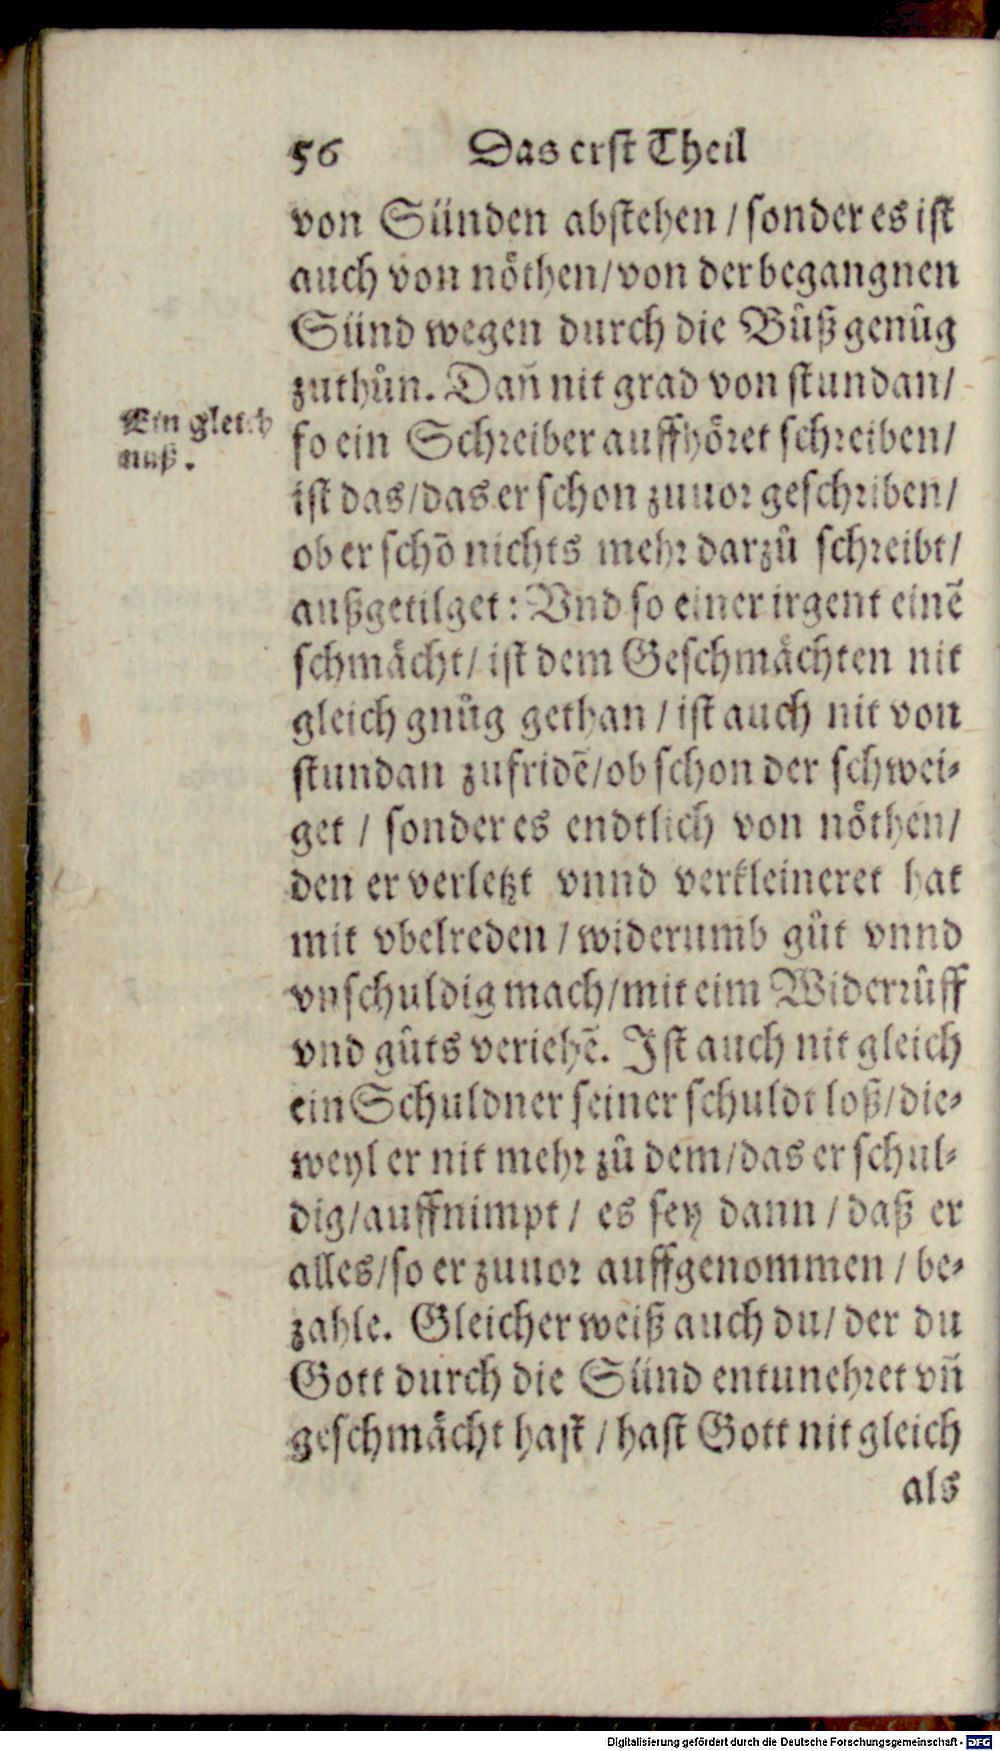 56 Das erst Theil
von Sünden abstehen / sonder es ist
auch von nöthen / von der begangnen
Sünd wegen durch die Bůß genůg
zuthůn. Dañ nit grad von stundan /
Ein gleich
nuß.
so ein Schreiber auffhöret schreiben /
ist das / das er schon zuuor geschriben /
ob er schõ nichts mehr darzů schreibt /
außgetilget : Vnd so einer irgent einẽ
schmächt / ist dem Geschmächten nit
gleich gnůg gethan / ist auch nit von
stundan zufridẽ / ob schon der schwei-
get / sonder es endtlich von nöthen /
den er verletzt vnnd verkleineret hat
mit vbelreden / widerumb gůt vnnd
vnschuldig mach / mit eim Widerrůff
vnd gůts veriehẽ. Ist auch nit gleich
ein Schuldner seiner schuldt loß / die-
weyl er nit mehr zů dem / das er schul-
dig / auffnimpt / es sey dann / daß er
alles / so er zuuor auffgenommen / be-
zahle. Gleicher weiß auch du / der du
Gott durch die Sünd entunehret vñ
geschmächt hast / hast Gott nit gleich
als
Digitalisierung gefördert durch die Deutsche Forschungsgemeinschaft - DFG